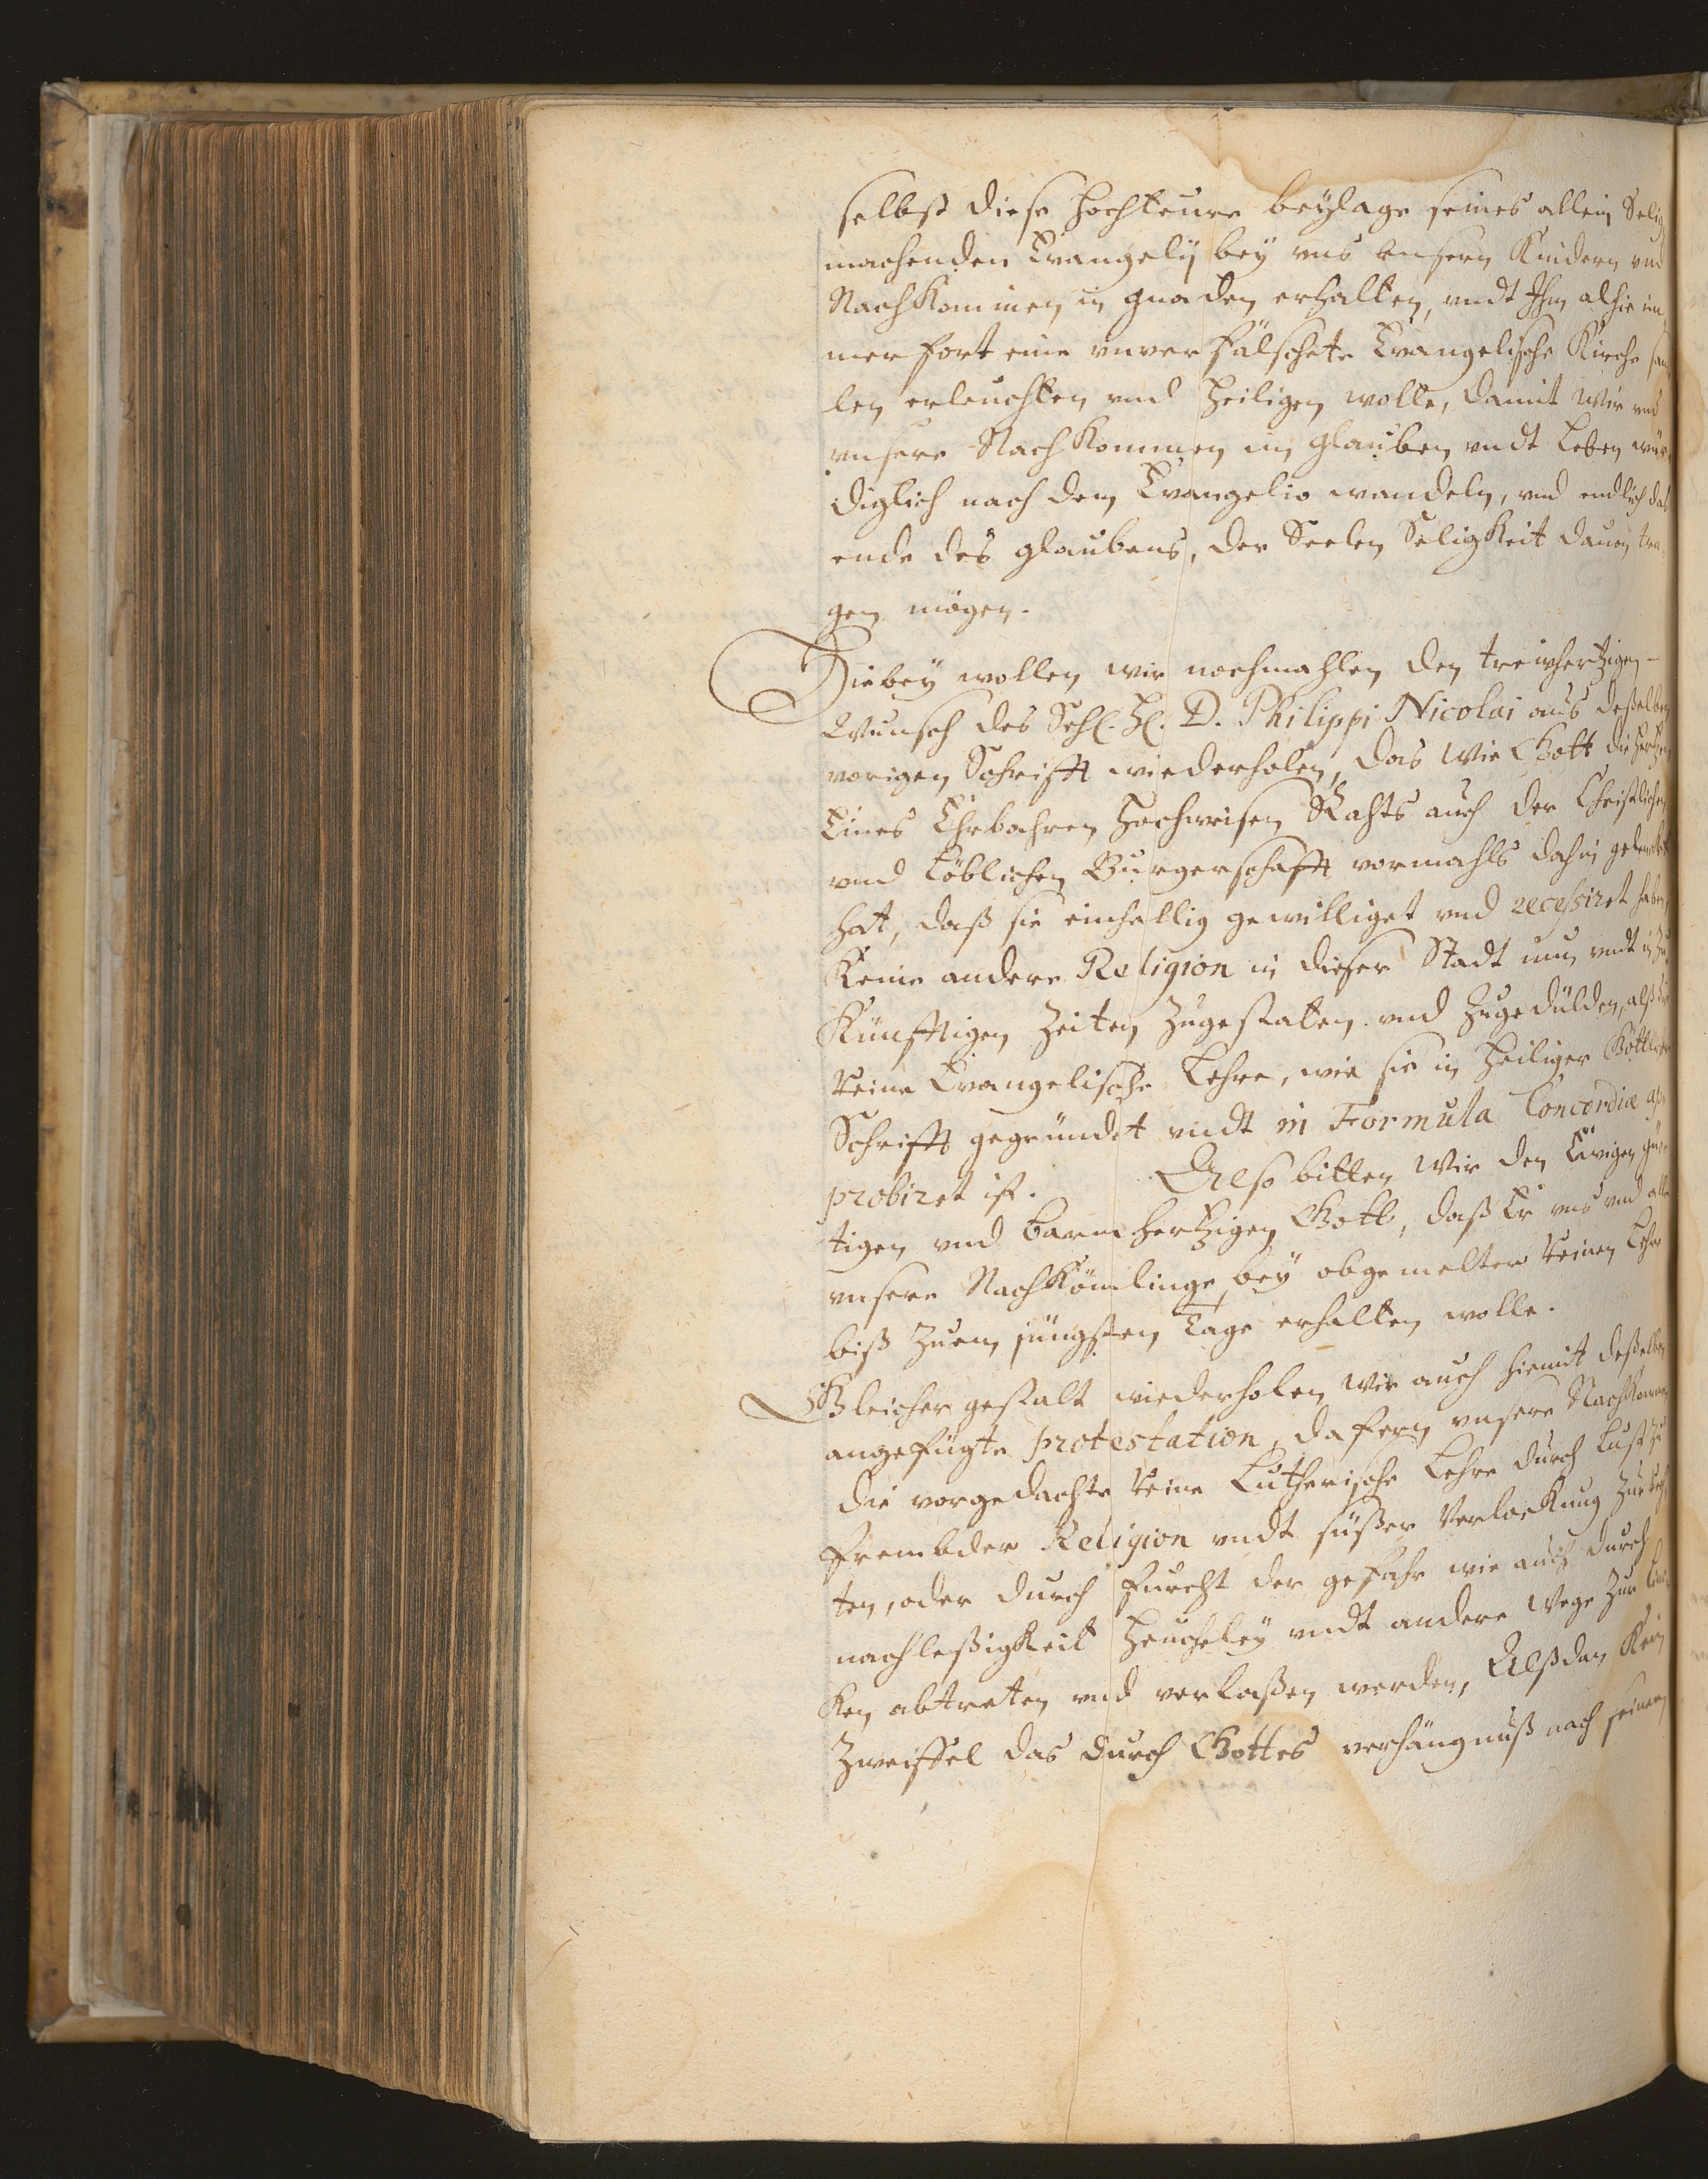 selbst diese Hochteure beÿlage seines allein Selig
machenden Evangelÿ beÿ uns unsern Kindern und
NachKommen in gnaden erhalten, undt Ihm alhie im
mer fort eine unverfälschete Evangelische Kirche
len erleuchten und Heiligen wolle, damit Wir und
unsere NachKommen im glauben undt Leben wür-
diglich nach dem Evangelio wandeln, und endlich das
ende des glaubens, der Seelen SeligKeit davon tra-
gen mögen.
Hiebeÿ wollen wir nochmahlen den treuhertzigen
Wunsch des Sehl. H. D. Philippi Nicolai aus deßelben
vorigen Schrifft wiederholen, das Wie Gott die Hertzen
Eines Ehrbahren Hochweisen Rahts auch der Christlichen
und Löblichen Burgerschafft vormahls dahin gelencket
hat, daß sie einhellig gewilliget und recessiret haben,
Keine andere Religion in dieser Stadt nun undt in zu
Künfftigen Zeiten zugestaten und zugedülden, alß die
reine Evangelische Lehre, wie sie in Heiliger Göttlicher
Schrifft gegründet undt in Formula Concordiæ ap-
probiret ist. Also bitten Wir den Ewigen gü-
tigen und barmhertzigen Gott, daß Er uns und alle
unsere NachKömlinge beÿ obgemelter reinen Lehre
biß zum jüngsten Tage erhalten wolle.
Gleicher gestalt wiederholen Wir auch hiemit deßelben
angefügte protestation, dafern unsere NachKommen
die vorgedachte reine Lutherische Lehre durch Lust zu
frembder Religion undt süßer Verlockung zur
ten, oder durch furcht der gefahr wie auch durch
nachleßigKeit Heucheleÿ undt andere Wege zur
Ken abtreten und verlaßen werden, Alßdan Kein
Zweiffel das durch Gottes verhängnuß nach seinem